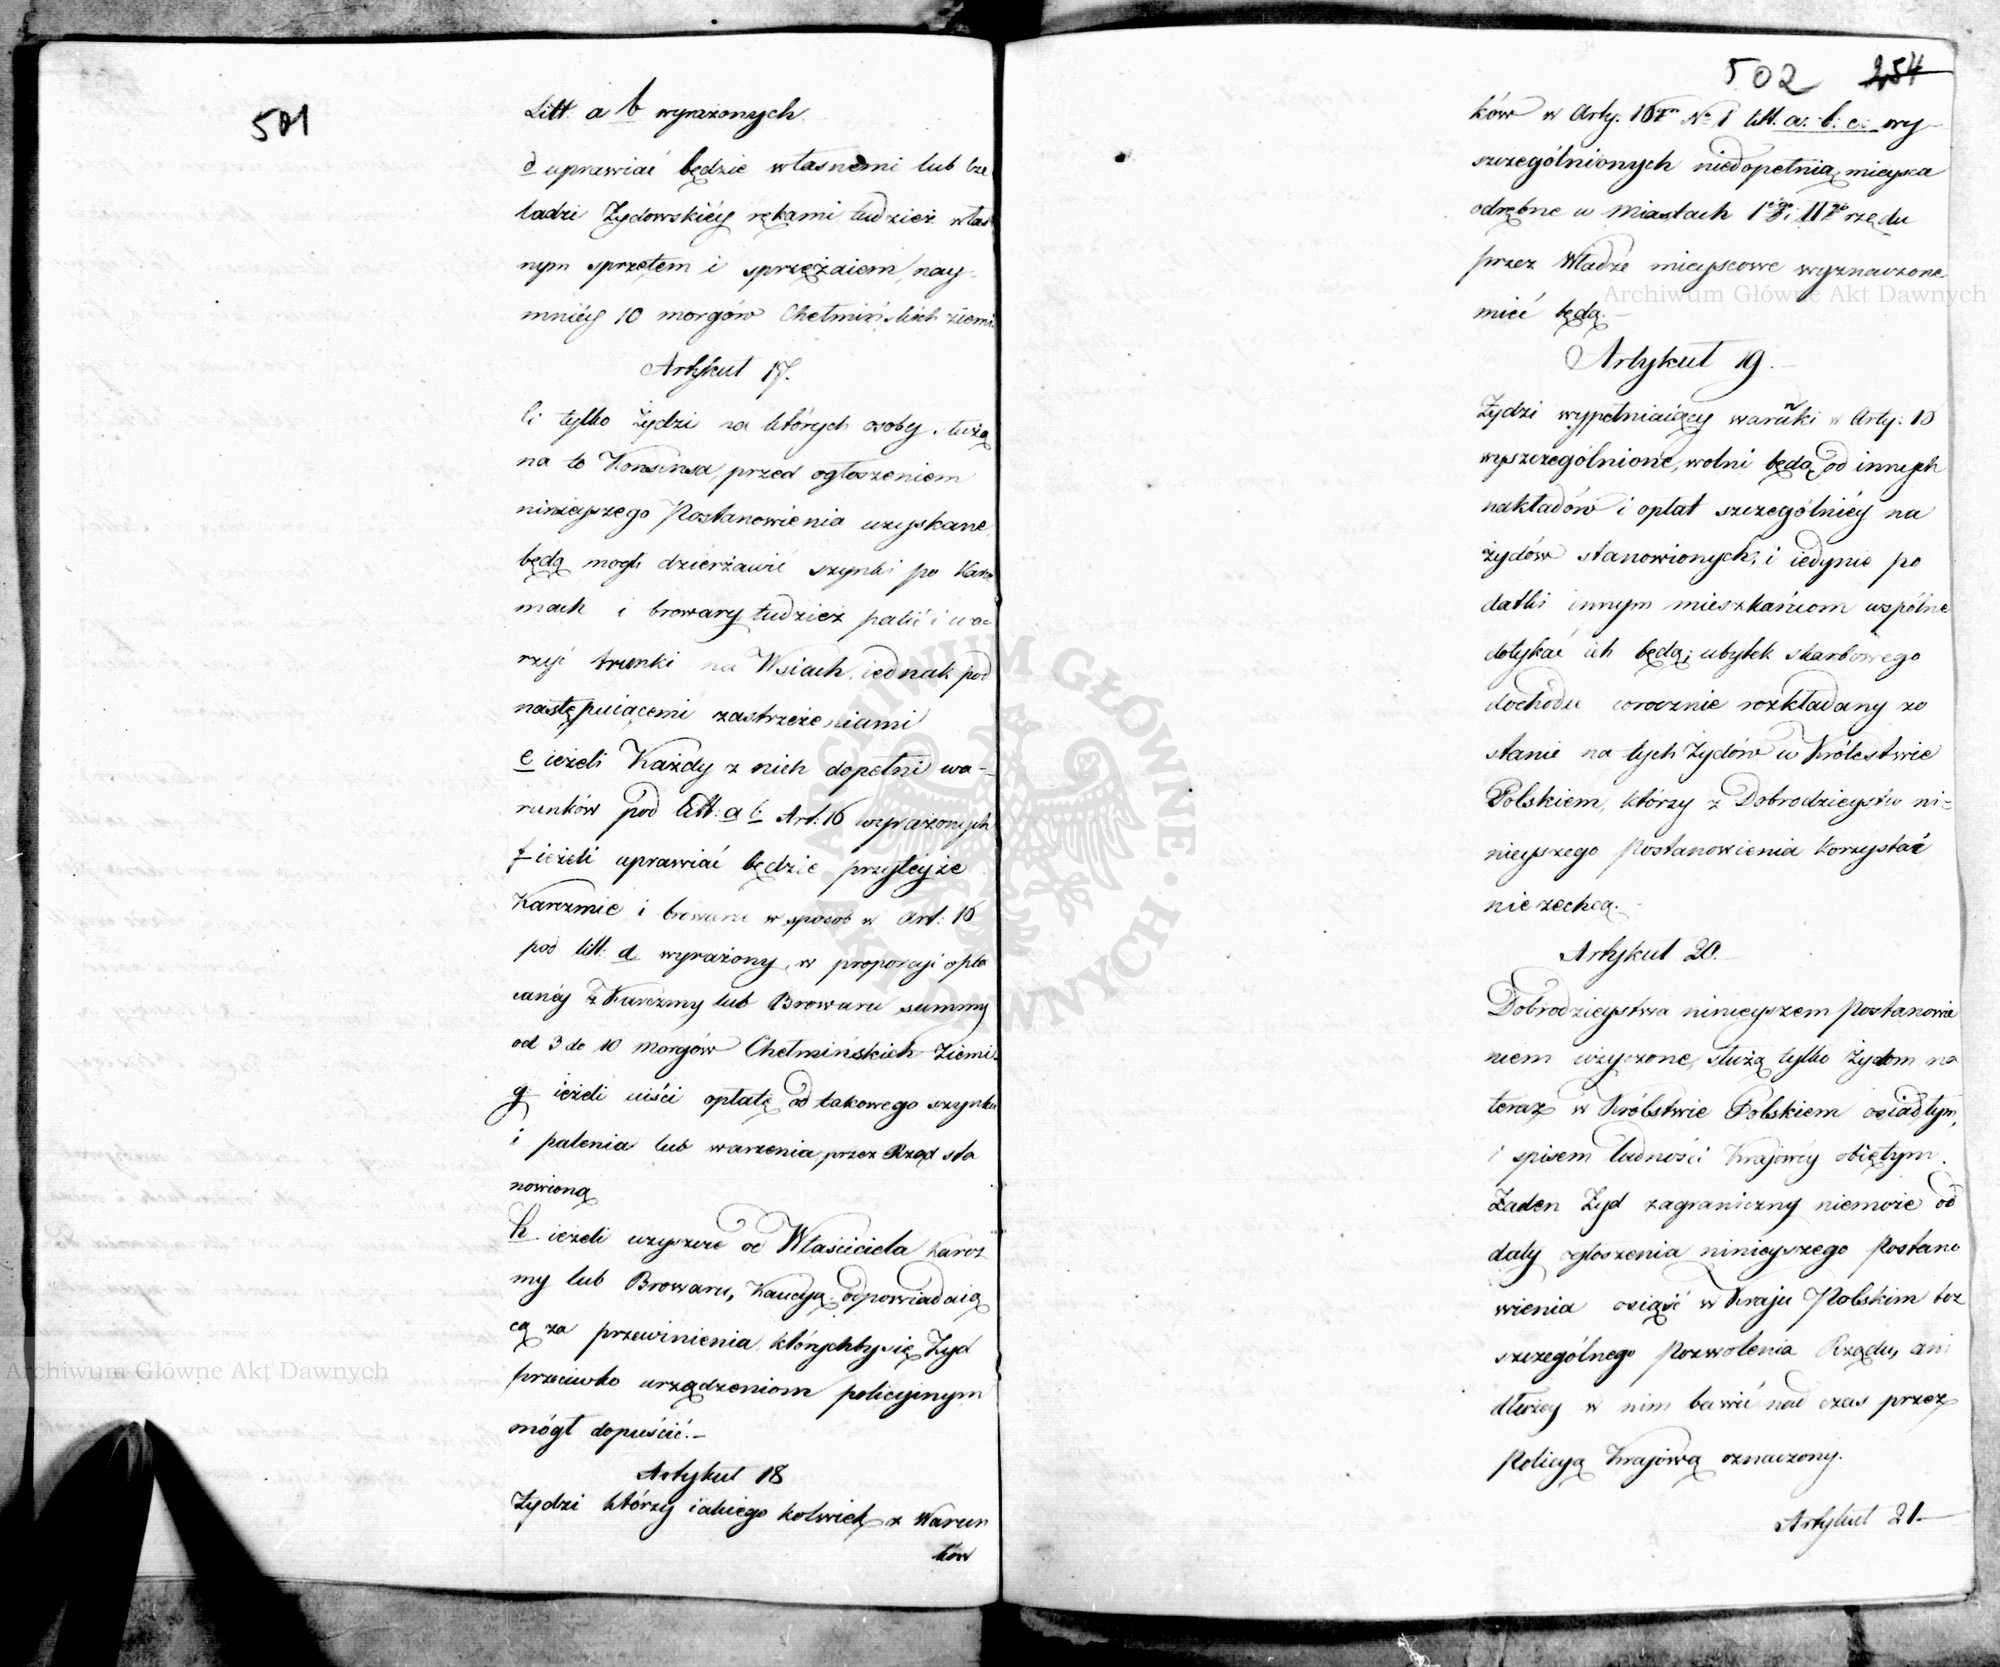 501
Litt. a b wyrażonych
d uprawiać będzie własnemi lub cze
ladzi Żydowskiéy rękami tudzież włas
nym sprzętem i sprzężaiem, nay-
mniéy 10 morgów Chełmińskich ziemi.
Artykuł 17.
Ci tylko Żydzi na których osoby służą
na to Konsensa, przed ogłoszeniem
ninieyszego Postanowienia uzyskane
będą mogli dzierżawić szynki po Karcz
mach i browary tudzież palić i wa-
rzyć trunki na Wsiach, iednak pod
następuiącemi zastrzeżeniami
e ieżeli Każdy z nich dopełni wa-
runków pod litt: a b Art: 16 wyrażonych
f ieżeli uprawiać będzie przyteyże
Karczmie i browarze w sposob w Art: 16
pod litt. d wyrażony, w proporcyi opła
canéy z Karczmy lub Browaru summy
od 3 do 10 morgów Chełmińskich Ziemi.
g ieżeli uiści opłatę od takowego szynku
i palenia lub warzenia przez Rząd sta
nowioną
h ieżeli uzyszcze od Właściciela Karcz
my lub Browaru, Kaucyą odpowiadaią
cą za przewinienia, którychby się Żyd
przeciwko urządzeniom policyinym
mógł dopuścić.-
Artykuł 18
Żydzi którzy iakiego kolwiek z Warun
ków
502 254
ków w Arty: 16 No 1 litt. a: b: c: wy-
szczególnionych niedopełnią, mieysca
odrębne w Miastach I i II rzędu
przez Władze mieyscowe wyznaczone
mieć będą.-
Artykuł 19.-
Żydzi wypełniaiący warunki w Arty: 16
wyszczególnione, wolni będą od innych
nakładów i opłat szczególniéy na
żydów stanowionych; i iedynie po
datki innym mieszkańcom wspólne
dotykać ich będą; ubytek skarbowego
dochodu corocznie rozkładany zo
stanie na tych Żydów w Królestwie
Polskiem, którzy z Dobrodzieystw ni-
nieyszego Postanowienia korzystać
nie zechcą.-
Artykuł 20.-
Dobrodzieystwa ninieyszem Postanowie
niem użyczone, służą tylko Żydom na
teraz w Królstwie Polskiem osiadłym,
i spisem ludności Krajowéy obiętym.
Żaden Żyd zagraniczny niemoże od
daty ogłoszenia ninieyszego Postano
wienia osiąść w Kraju Polskim bez
szczególnego Pozwolenia Rządu, ani
dłużey w nim bawić nad czas przez
Policyą Krajową oznaczony.
Artykuł 21.-
Archiwum Główne Akt Dawnych
Archiwum Główne Akt Dawnych
ARCHIWUM GŁÓWNE AKT DAWNYCH